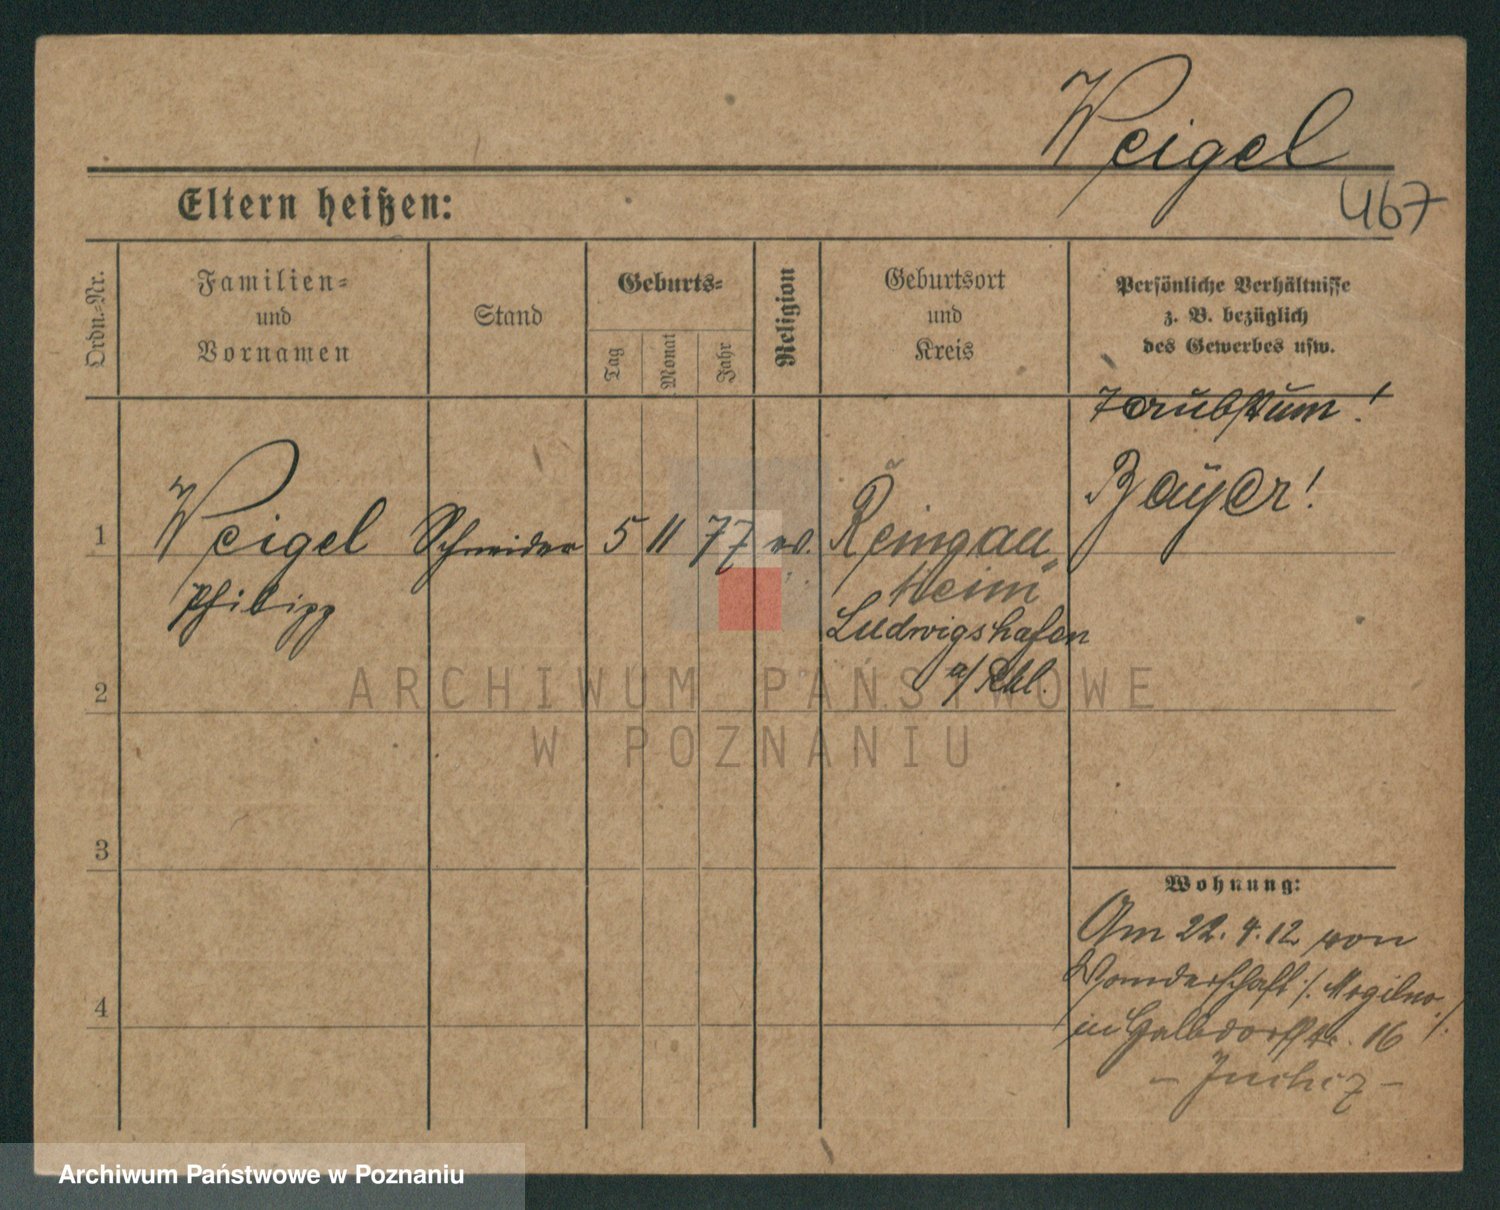 Weigel
467
Eltern heißen:
Ordn.-Nr.
Familien=
und
Vornamen
Stand
Geburts=
Tag
Monat
Jahr
Religion
Geburtsort
und
Kreis
Persönliche Verhältnisse
z. B. bezüglich
des Gewerbes usw.
Taubstum!
Bayer!
1
Weigel Schneider 5 11 77 ev. Reingau
Philipp
"heim
Ludwigshafen
a/Rh.
2
3
4
Wohnung:
Am 22.4.12 von
Wanderschaft /. Mogilno ./.
in Halbdorfstr. 16
ARCHIWUM PAŃSTWOWE
W POZNANIU
Archiwum Państwowe w Poznaniu